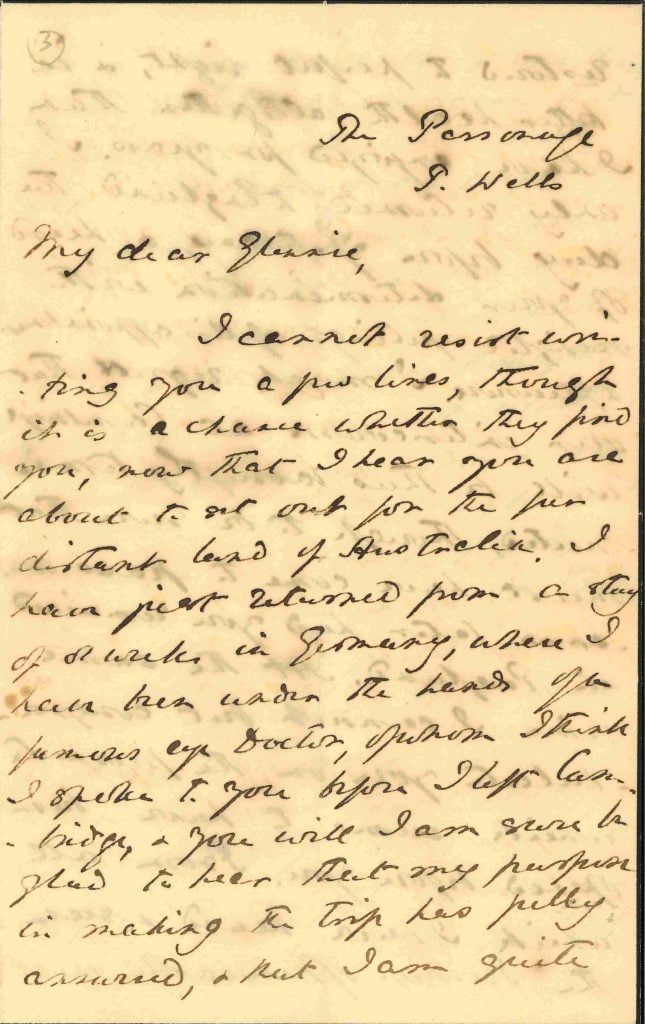 3
The Parsonage
T. Wells
My dear Glennie,
I cannot resist wri-
-ting you a few lines, though
it is a chance whether they find
you, now that I hear you are
about to set out for the far
distant land of Australia. I
have just returned from a stay
of 8 weeks in Germany, where I
have been under the hands of a
famous eye Doctor, of whom I think
I spoke to you before I left Cam-
-bridge, & you will I am sure be
glad to hear that my purpose
in making the trip has fully
answered, & that I am quite